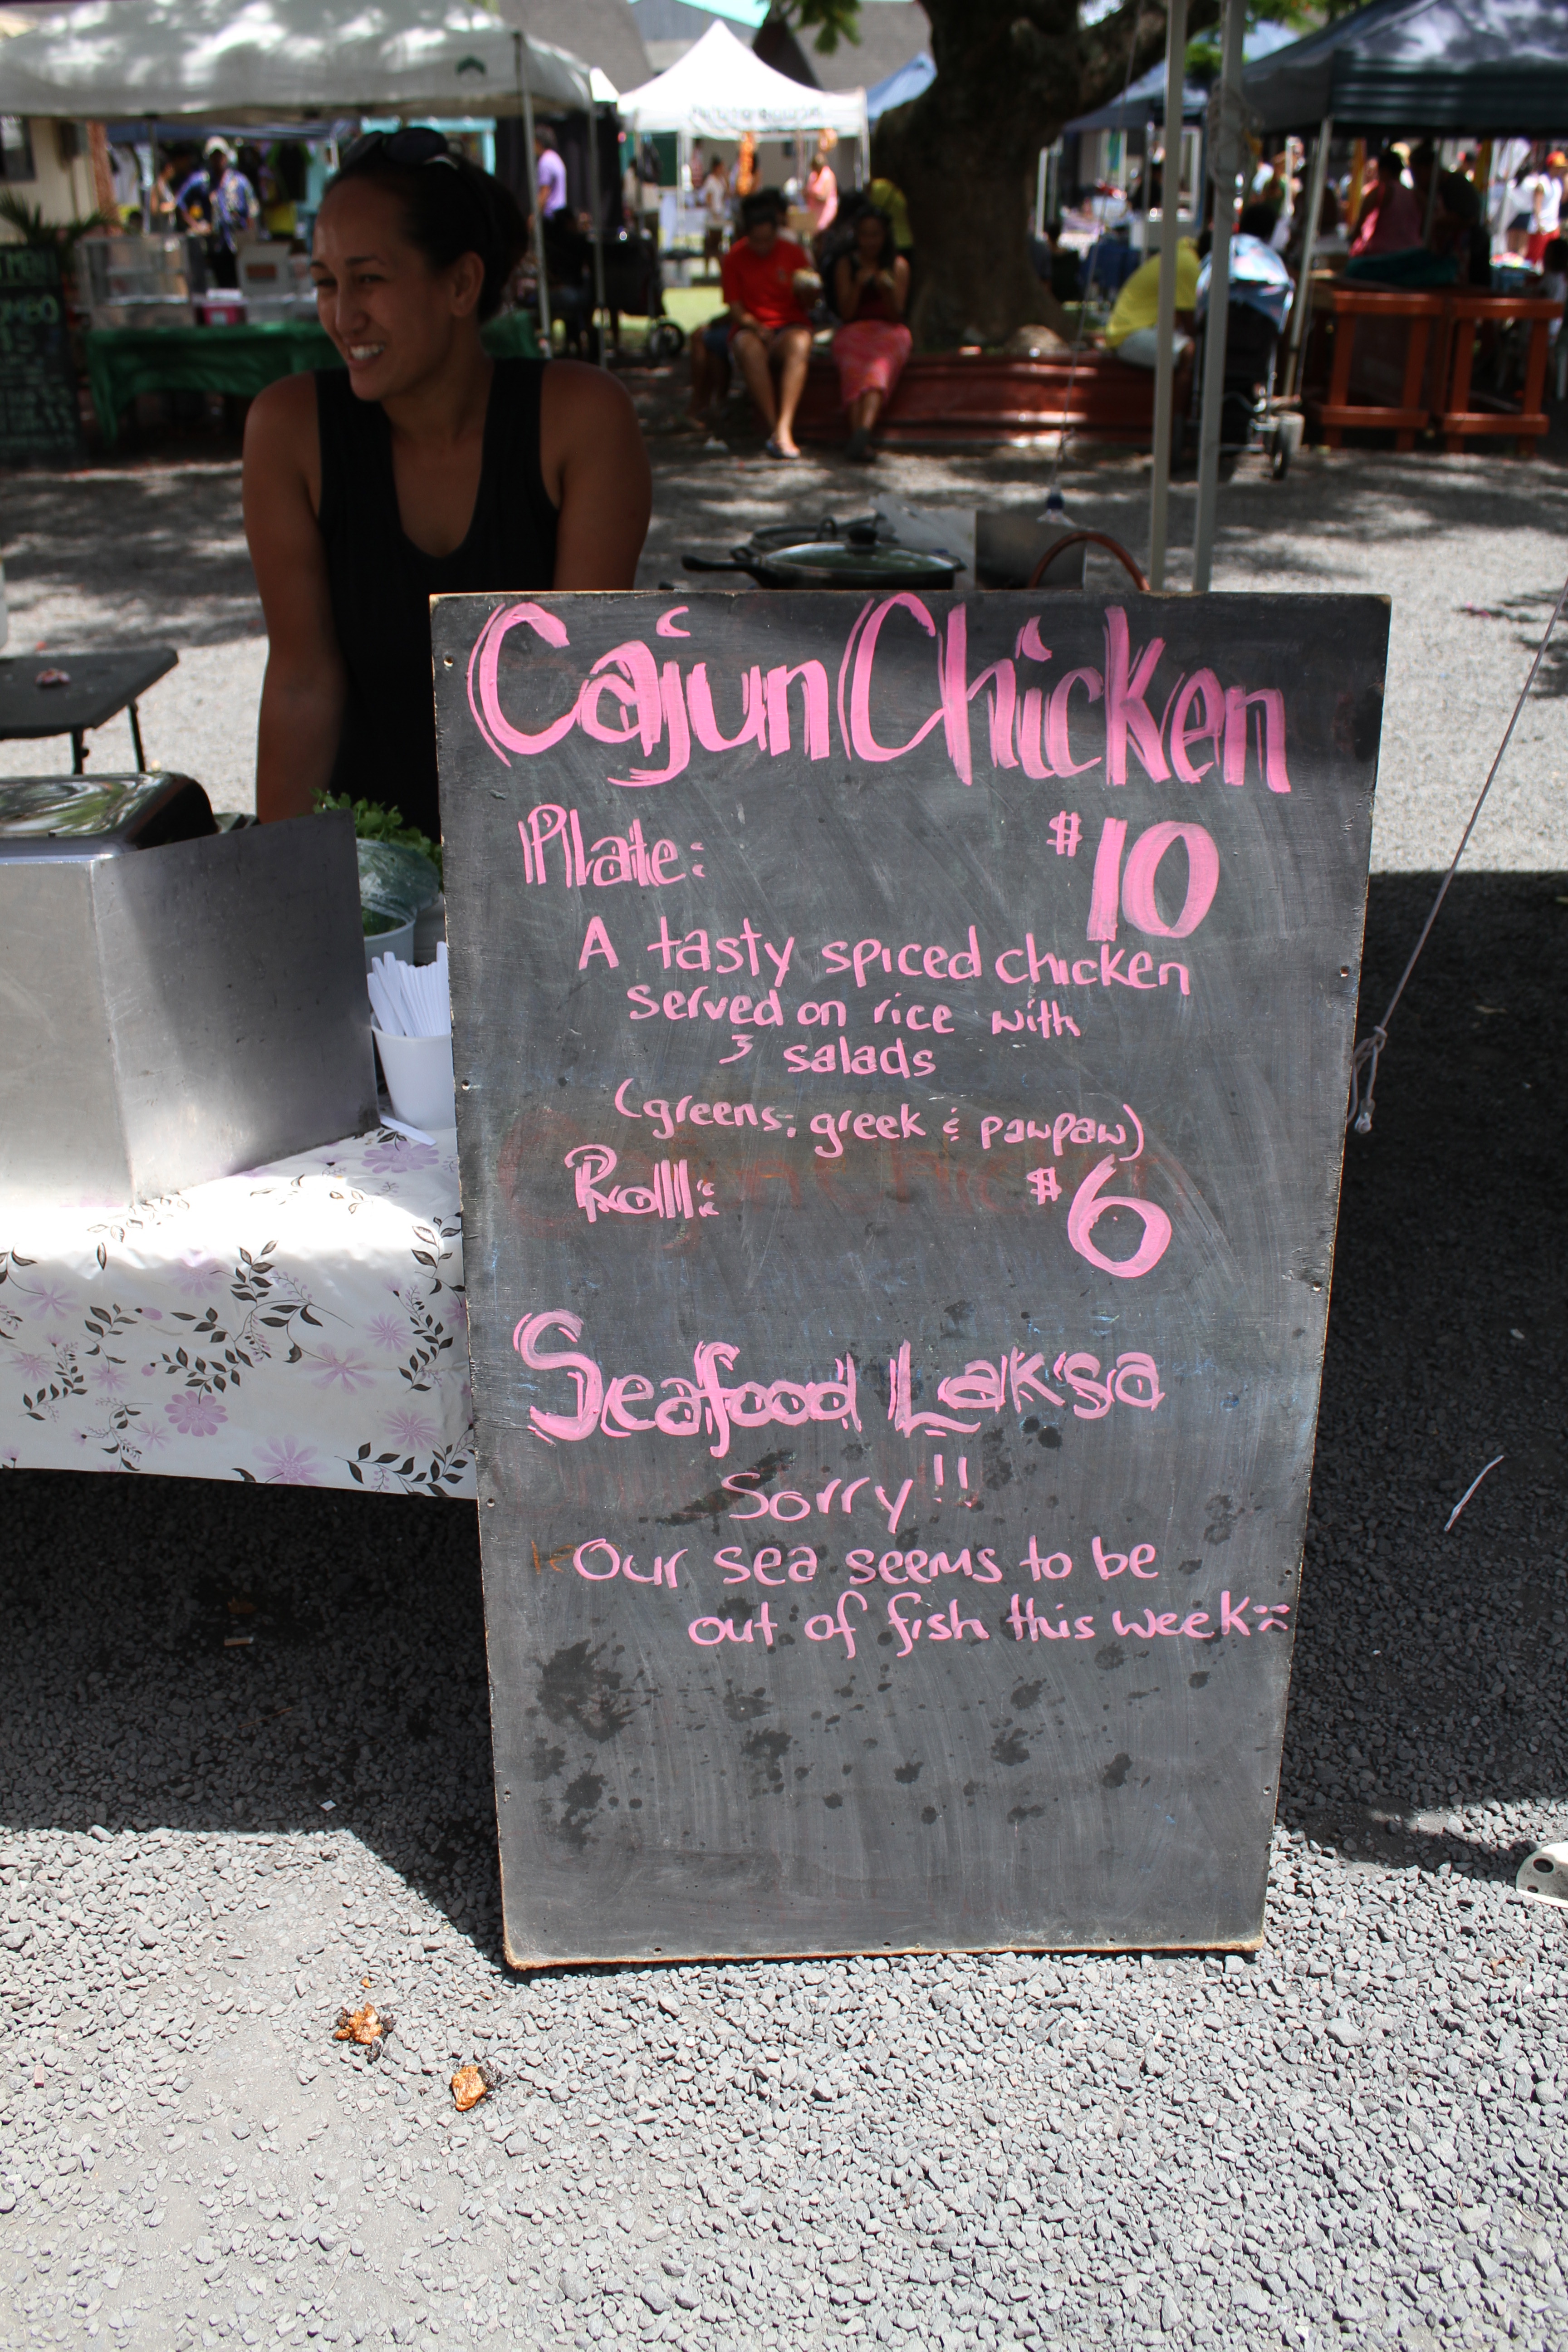 Cajun Chicken
Plate: $10
A tasty spiced chicken
served on rice with
3 salads
(greens, greek & pawpaw)
Roll: $6
Seafood Laksa
Sorry!!
Our sea seems to be
out of fish this week :(